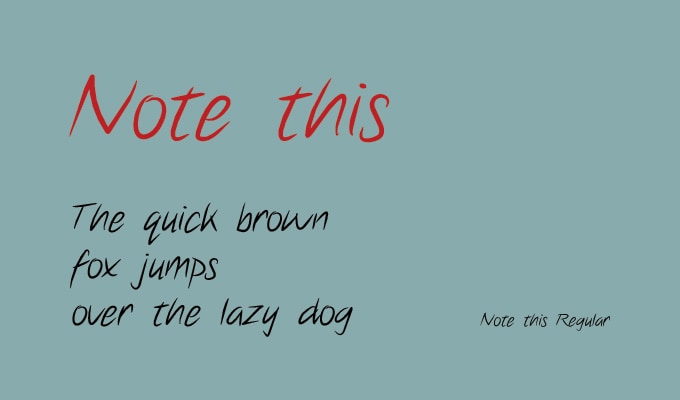 Note this
The quick brown
fox jumps
over the lazy dog
Note this Regular